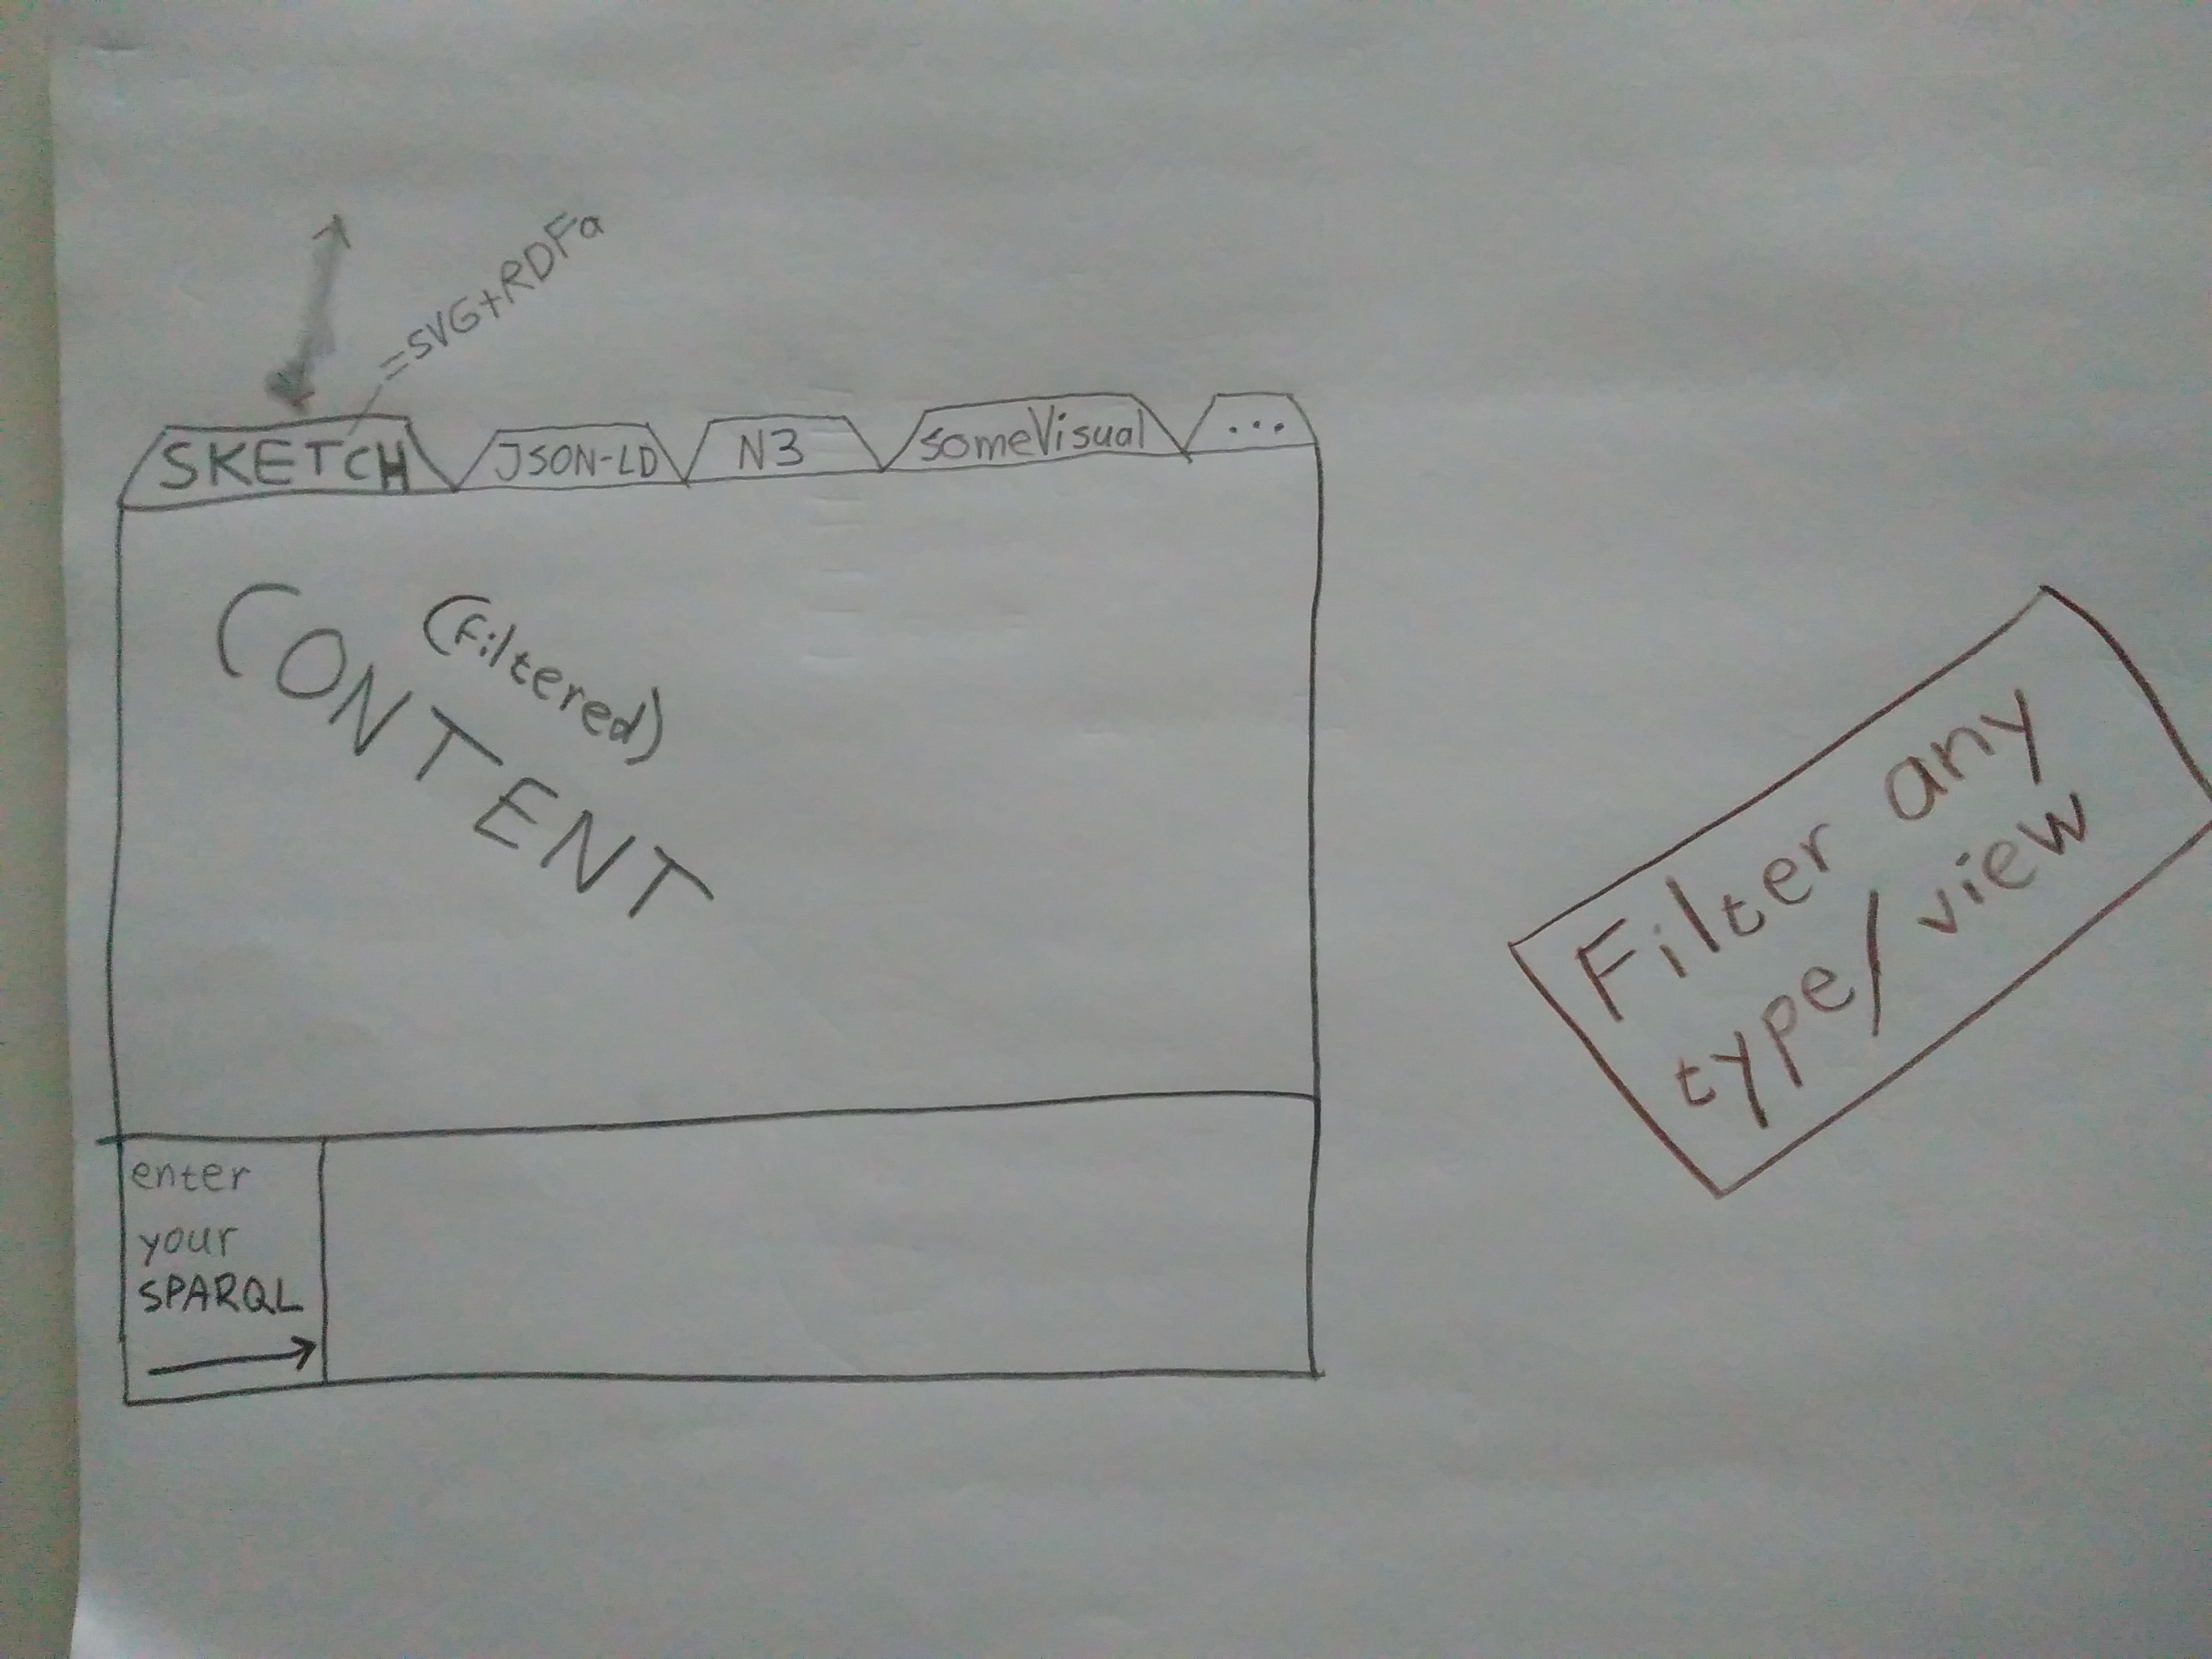 =SVG+RDFa
SKETCH
JSON-LD
N3
someVisual
...
(Filtered)
CONTENT
enter
your
SPARQL
Filter any
type/view